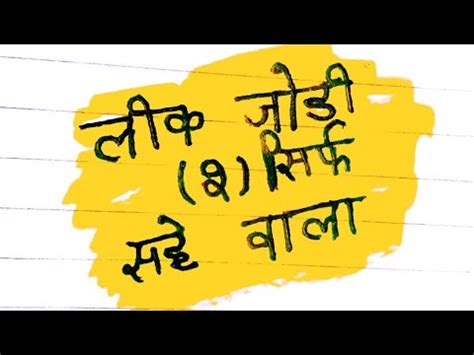 लीक जोडी
(२) सिर्फ
सट्टे वाला